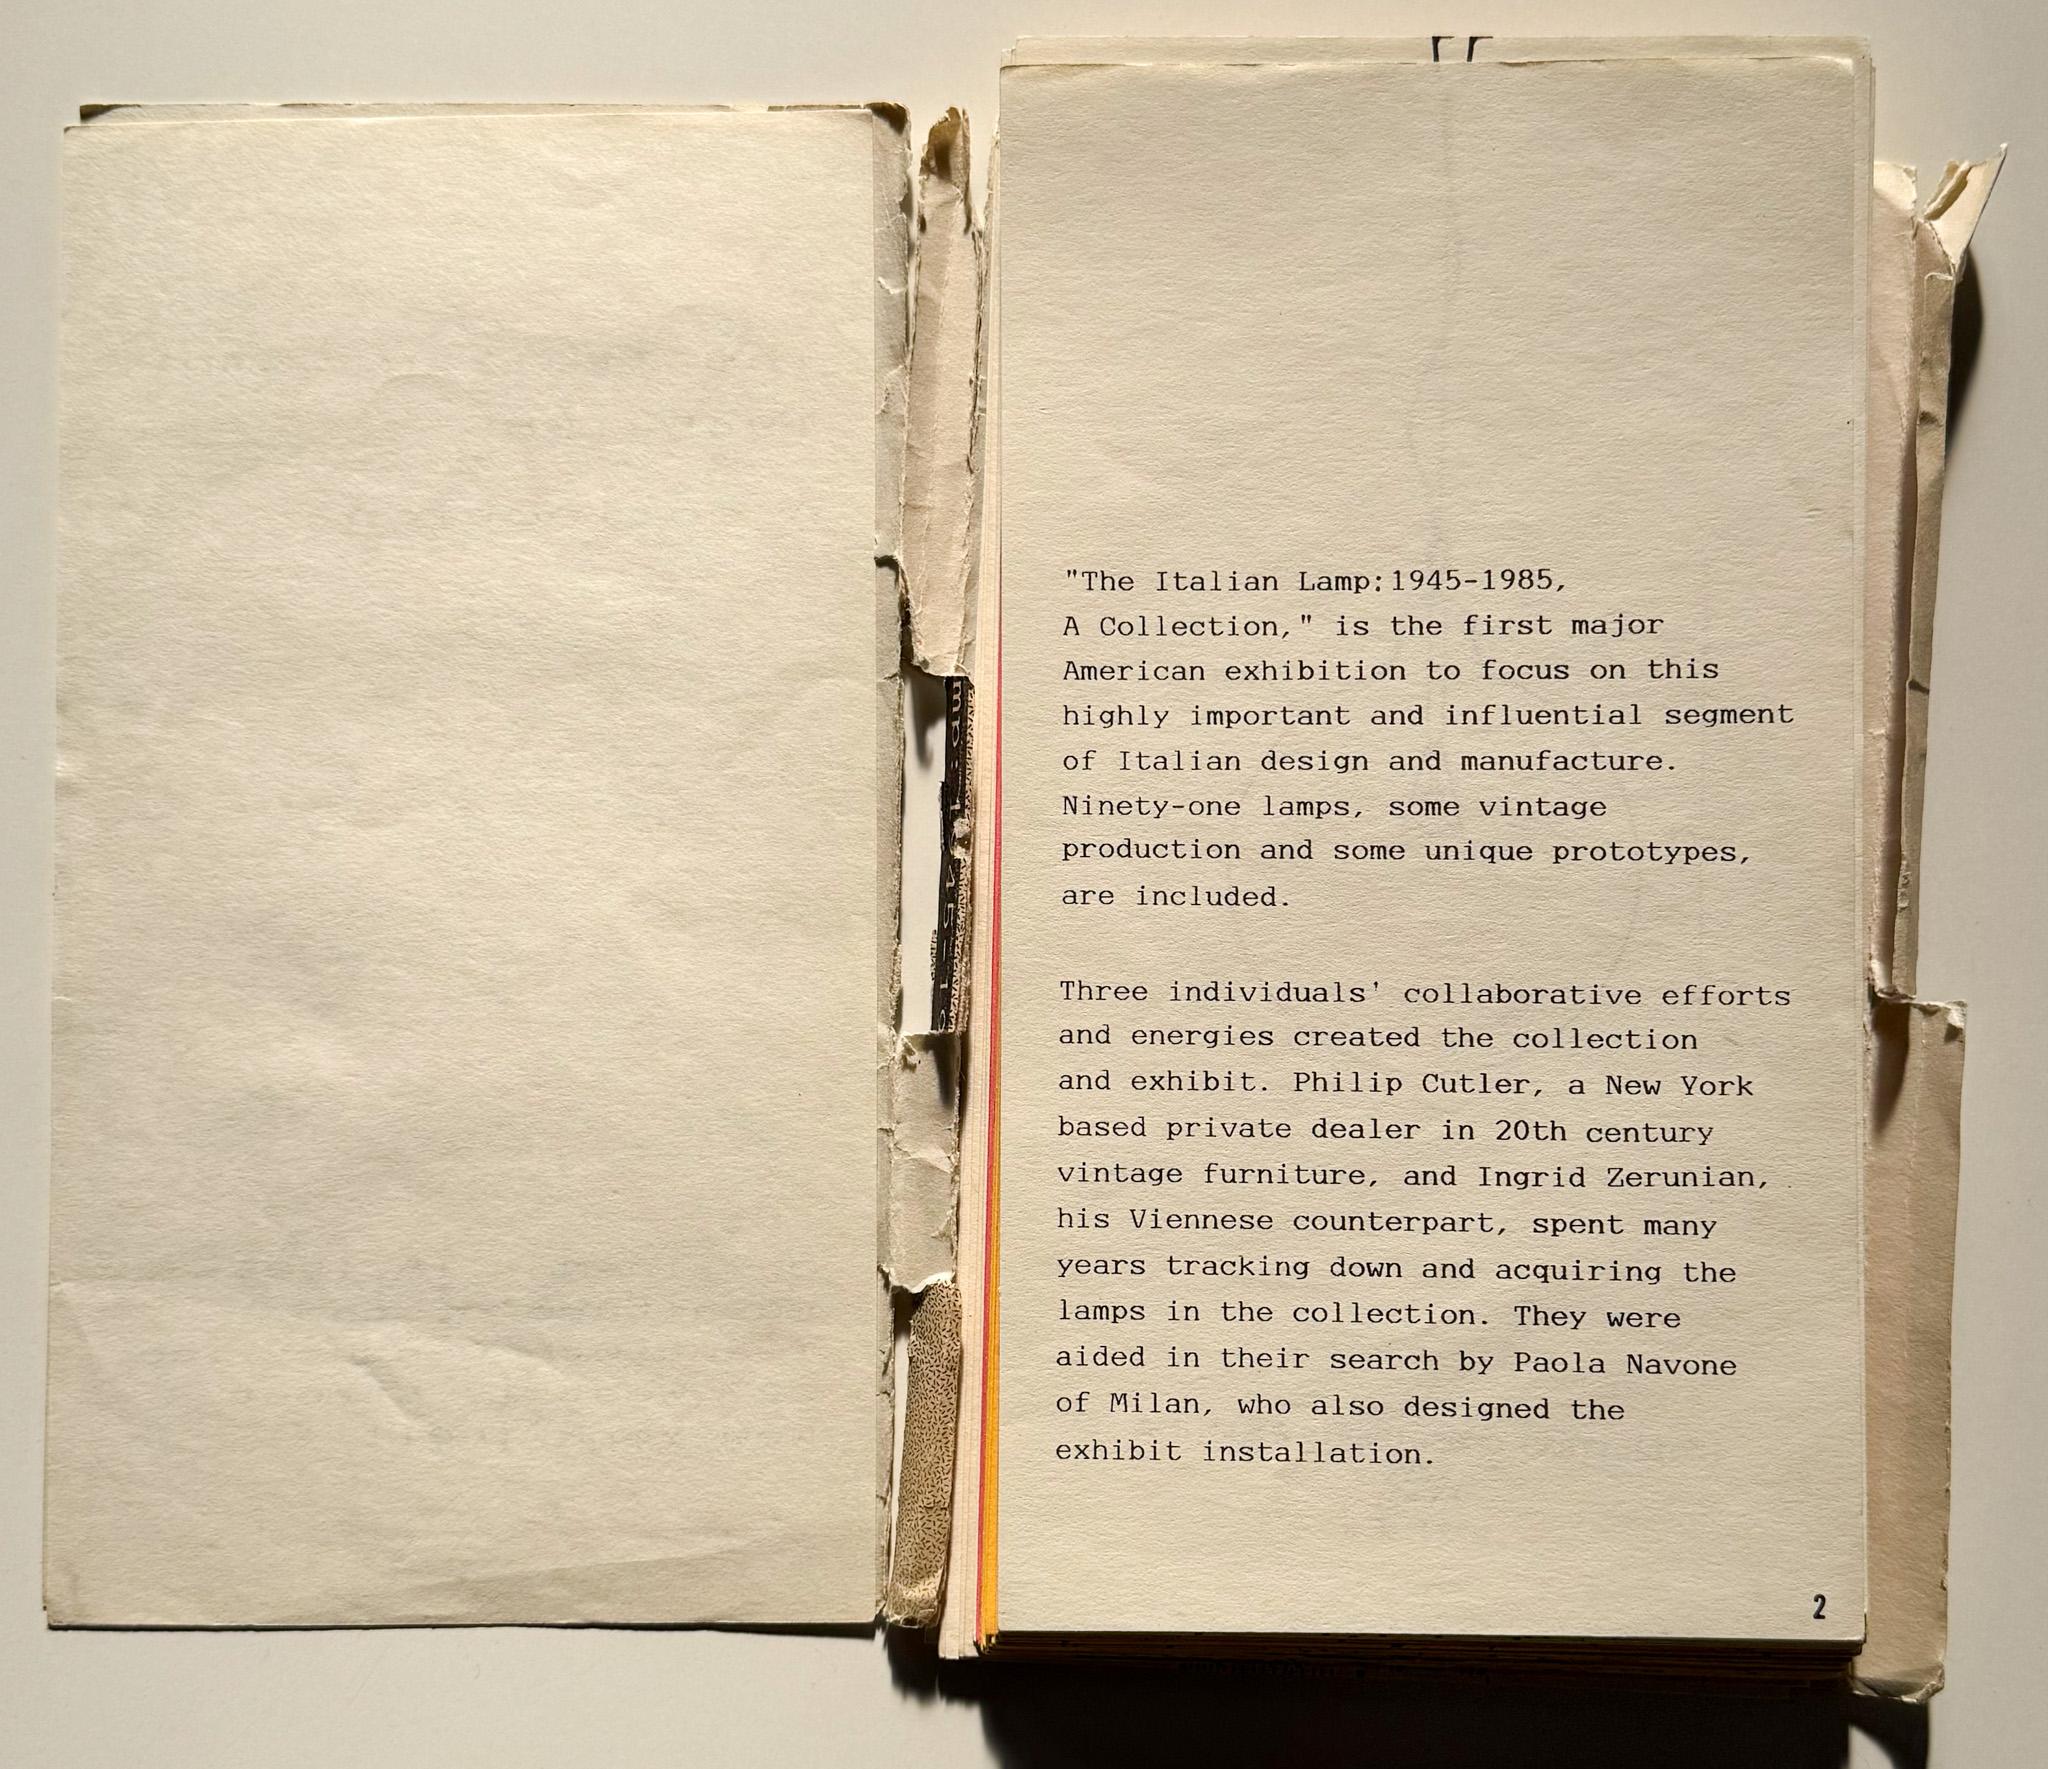 "The Italian Lamp:1945-1985,
A Collection," is the first major
American exhibition to focus on this
highly important and influential segment
of Italian design and manufacture.
Ninety-one lamps, some vintage
production and some unique prototypes,
are included.
Three individuals' collaborative efforts
and energies created the collection
and exhibit. Philip Cutler, a New York
based private dealer in 20th century
vintage furniture, and Ingrid Zerunian,
his Viennese counterpart, spent many
years tracking down and acquiring the
lamps in the collection. They were
aided in their search by Paola Navone
of Milan, who also designed the
exhibit installation.
2